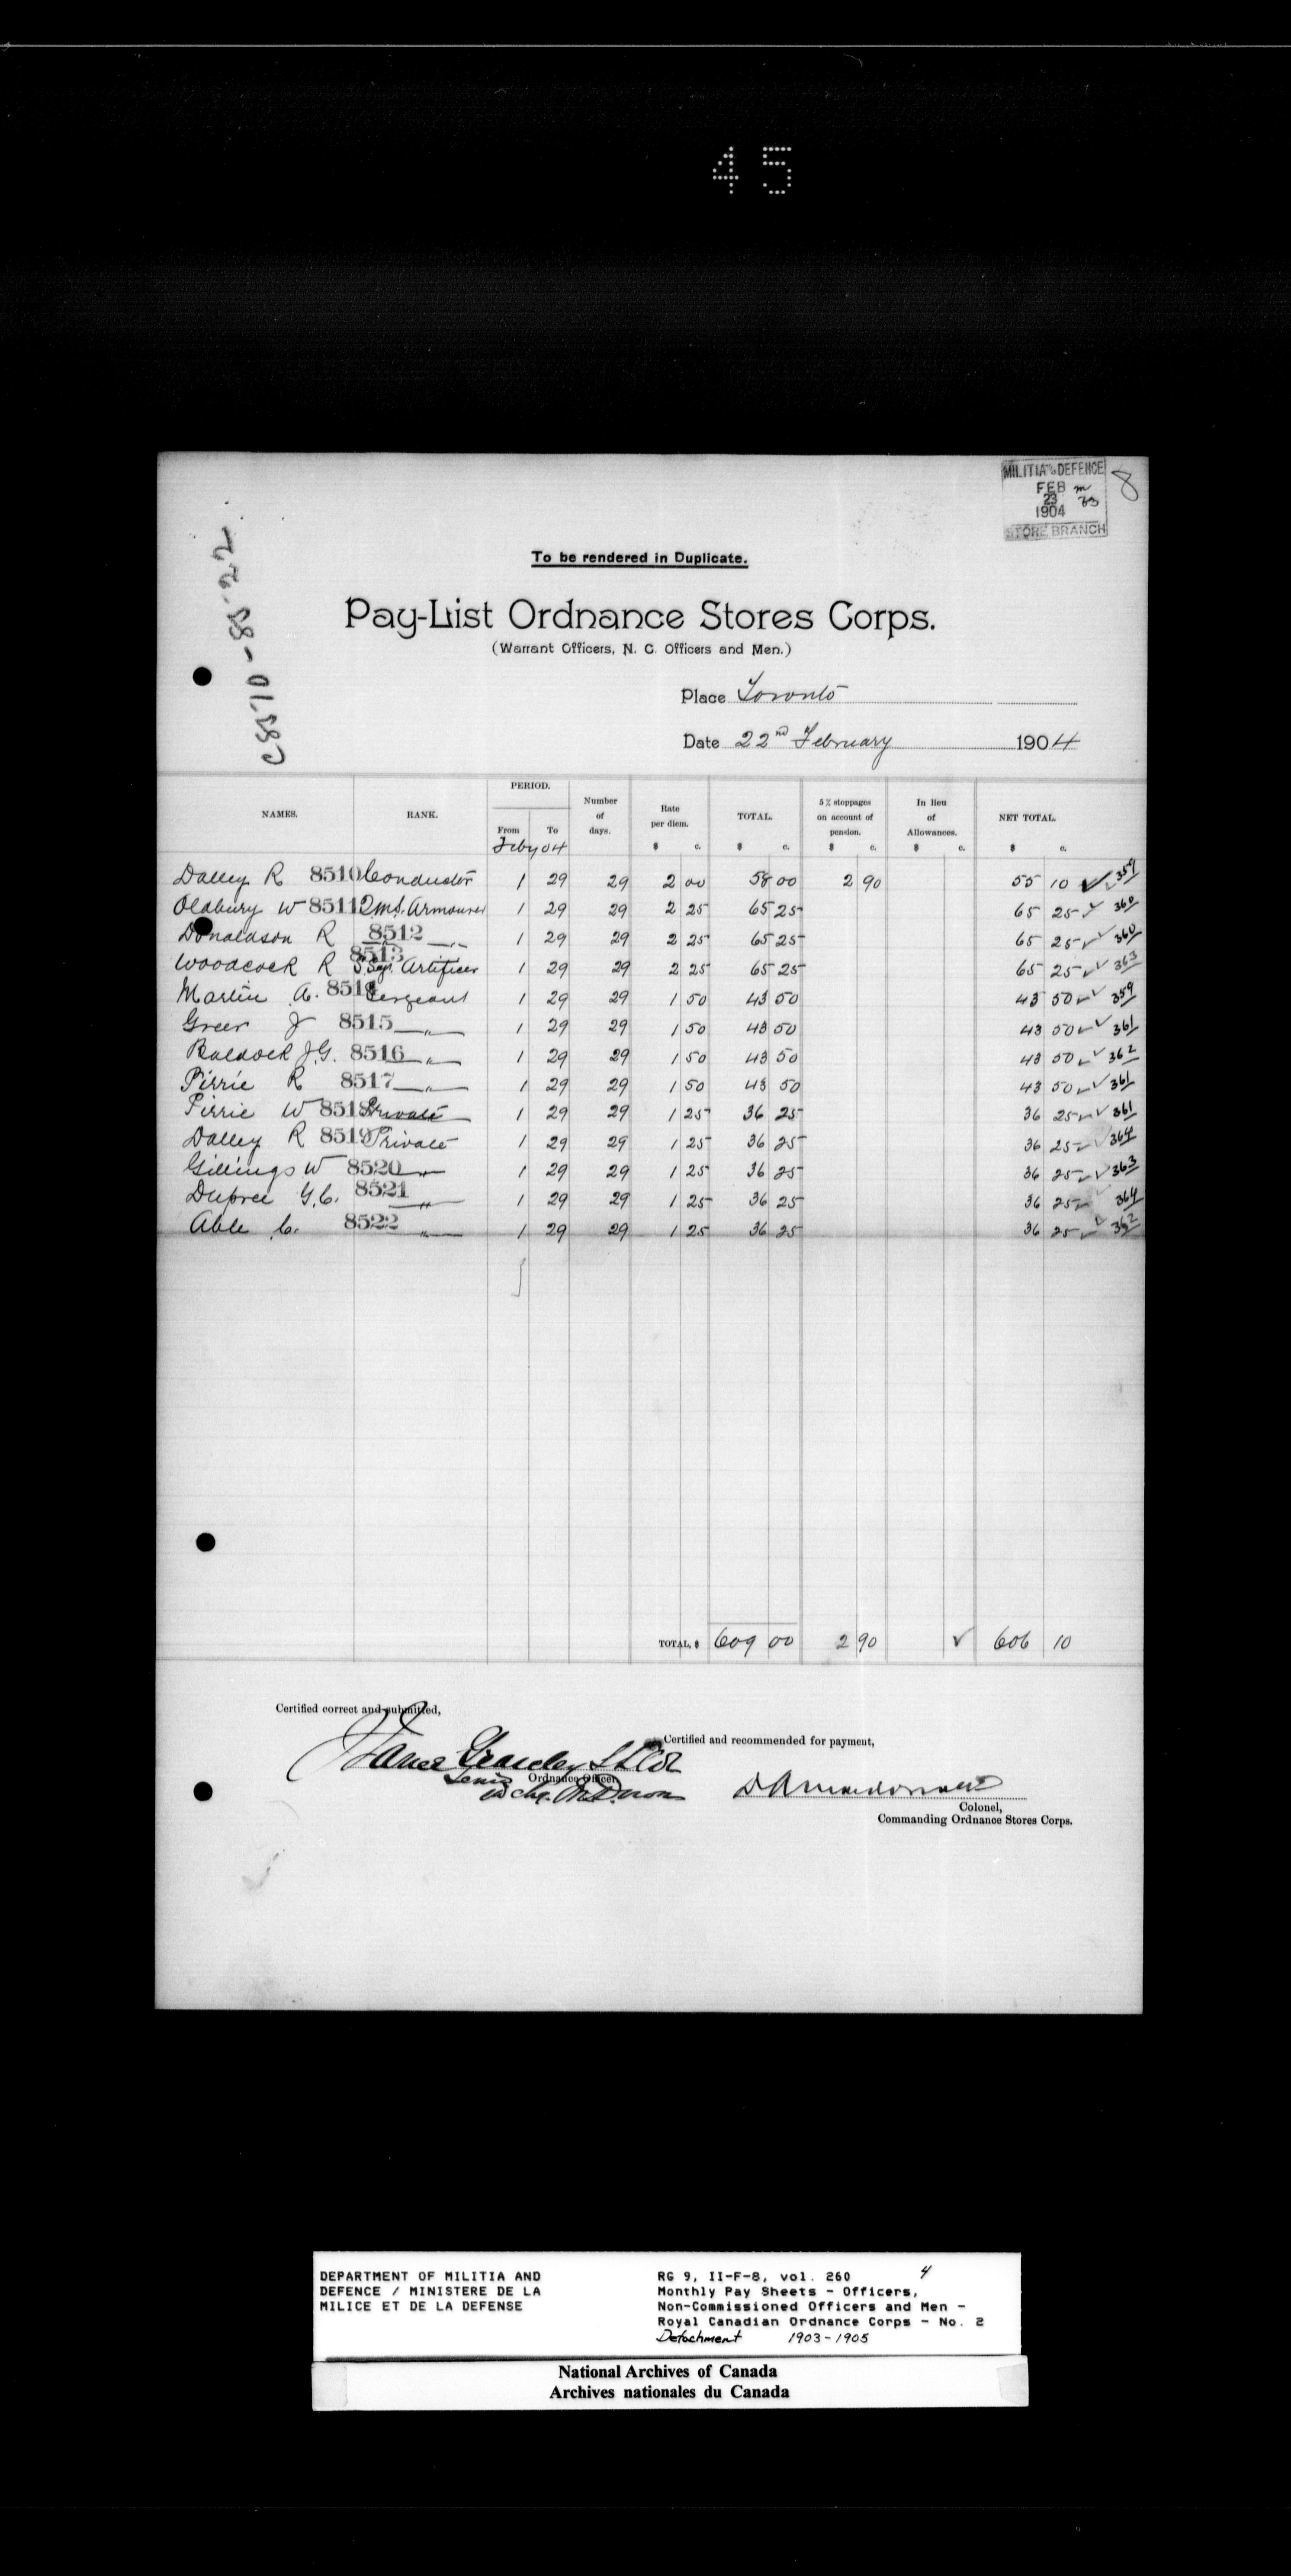 45
MILITIA & DEFENCE
FEB
23
1904
STORE BRANCH
8
C8510-85-22
To be rendered in Duplicate.
Pay-List Ordnance Stores Corps.
(Warrant Officers, N. C. Officers and Men.)
Place Toronto
Date 22nd February 1904
NAMES. RANK. PERIOD. From To Number of days. Rate per diem. $ c. TOTAL. $ c. 5% stoppages on account of pension. $ c. In lieu of Allowances. $ c. NET TOTAL. $ c.
Feby 04
Dalley R 8510 Conductor 1 29 29 2 00 58 00 2 90 55 10 359
Oldbury W 8511 QMS. Armourer 1 29 29 2 25 65 25 65 25 360
Donaldson R 8512 " 1 29 29 2 25 65 25 65 25 360
Woodcock R 8513 S.Sgt. Artificer 1 29 29 2 25 65 25 65 25 363
Martin A. 8514 Sergeant 1 29 29 1 50 43 50 43 50 359
Greer J 8515 " 1 29 29 1 50 43 50 43 50 361
Baldock J.G. 8516 " 1 29 29 1 50 43 50 43 50 362
Pirrie R 8517 " 1 29 29 1 50 43 50 43 50 361
Pirrie W 8518 Private 1 29 29 1 25 36 25 36 25 361
Dalley R 8519 Private 1 29 29 1 25 36 25 36 25 364
Gillings W 8520 " 1 29 29 1 25 36 25 36 25 363
Dupree G.C. 8521 " 1 29 29 1 25 36 25 36 25 364
Able C. 8522 " 1 29 29 1 25 36 25 36 25 362
TOTAL, $ 609 00 2 90 606 10
Certified correct and submitted,
Certified and recommended for payment,
Ordnance Officer
Colonel,
Commanding Ordnance Stores Corps.
DEPARTMENT OF MILITIA AND
DEFENCE / MINISTERE DE LA
MILICE ET DE LA DEFENSE
RG 9, II-F-8, vol. 260 4
Monthly Pay Sheets - Officers,
Non-Commissioned Officers and Men -
Royal Canadian Ordnance Corps - No. 2
Detachment 1903-1905
National Archives of Canada
Archives nationales du Canada